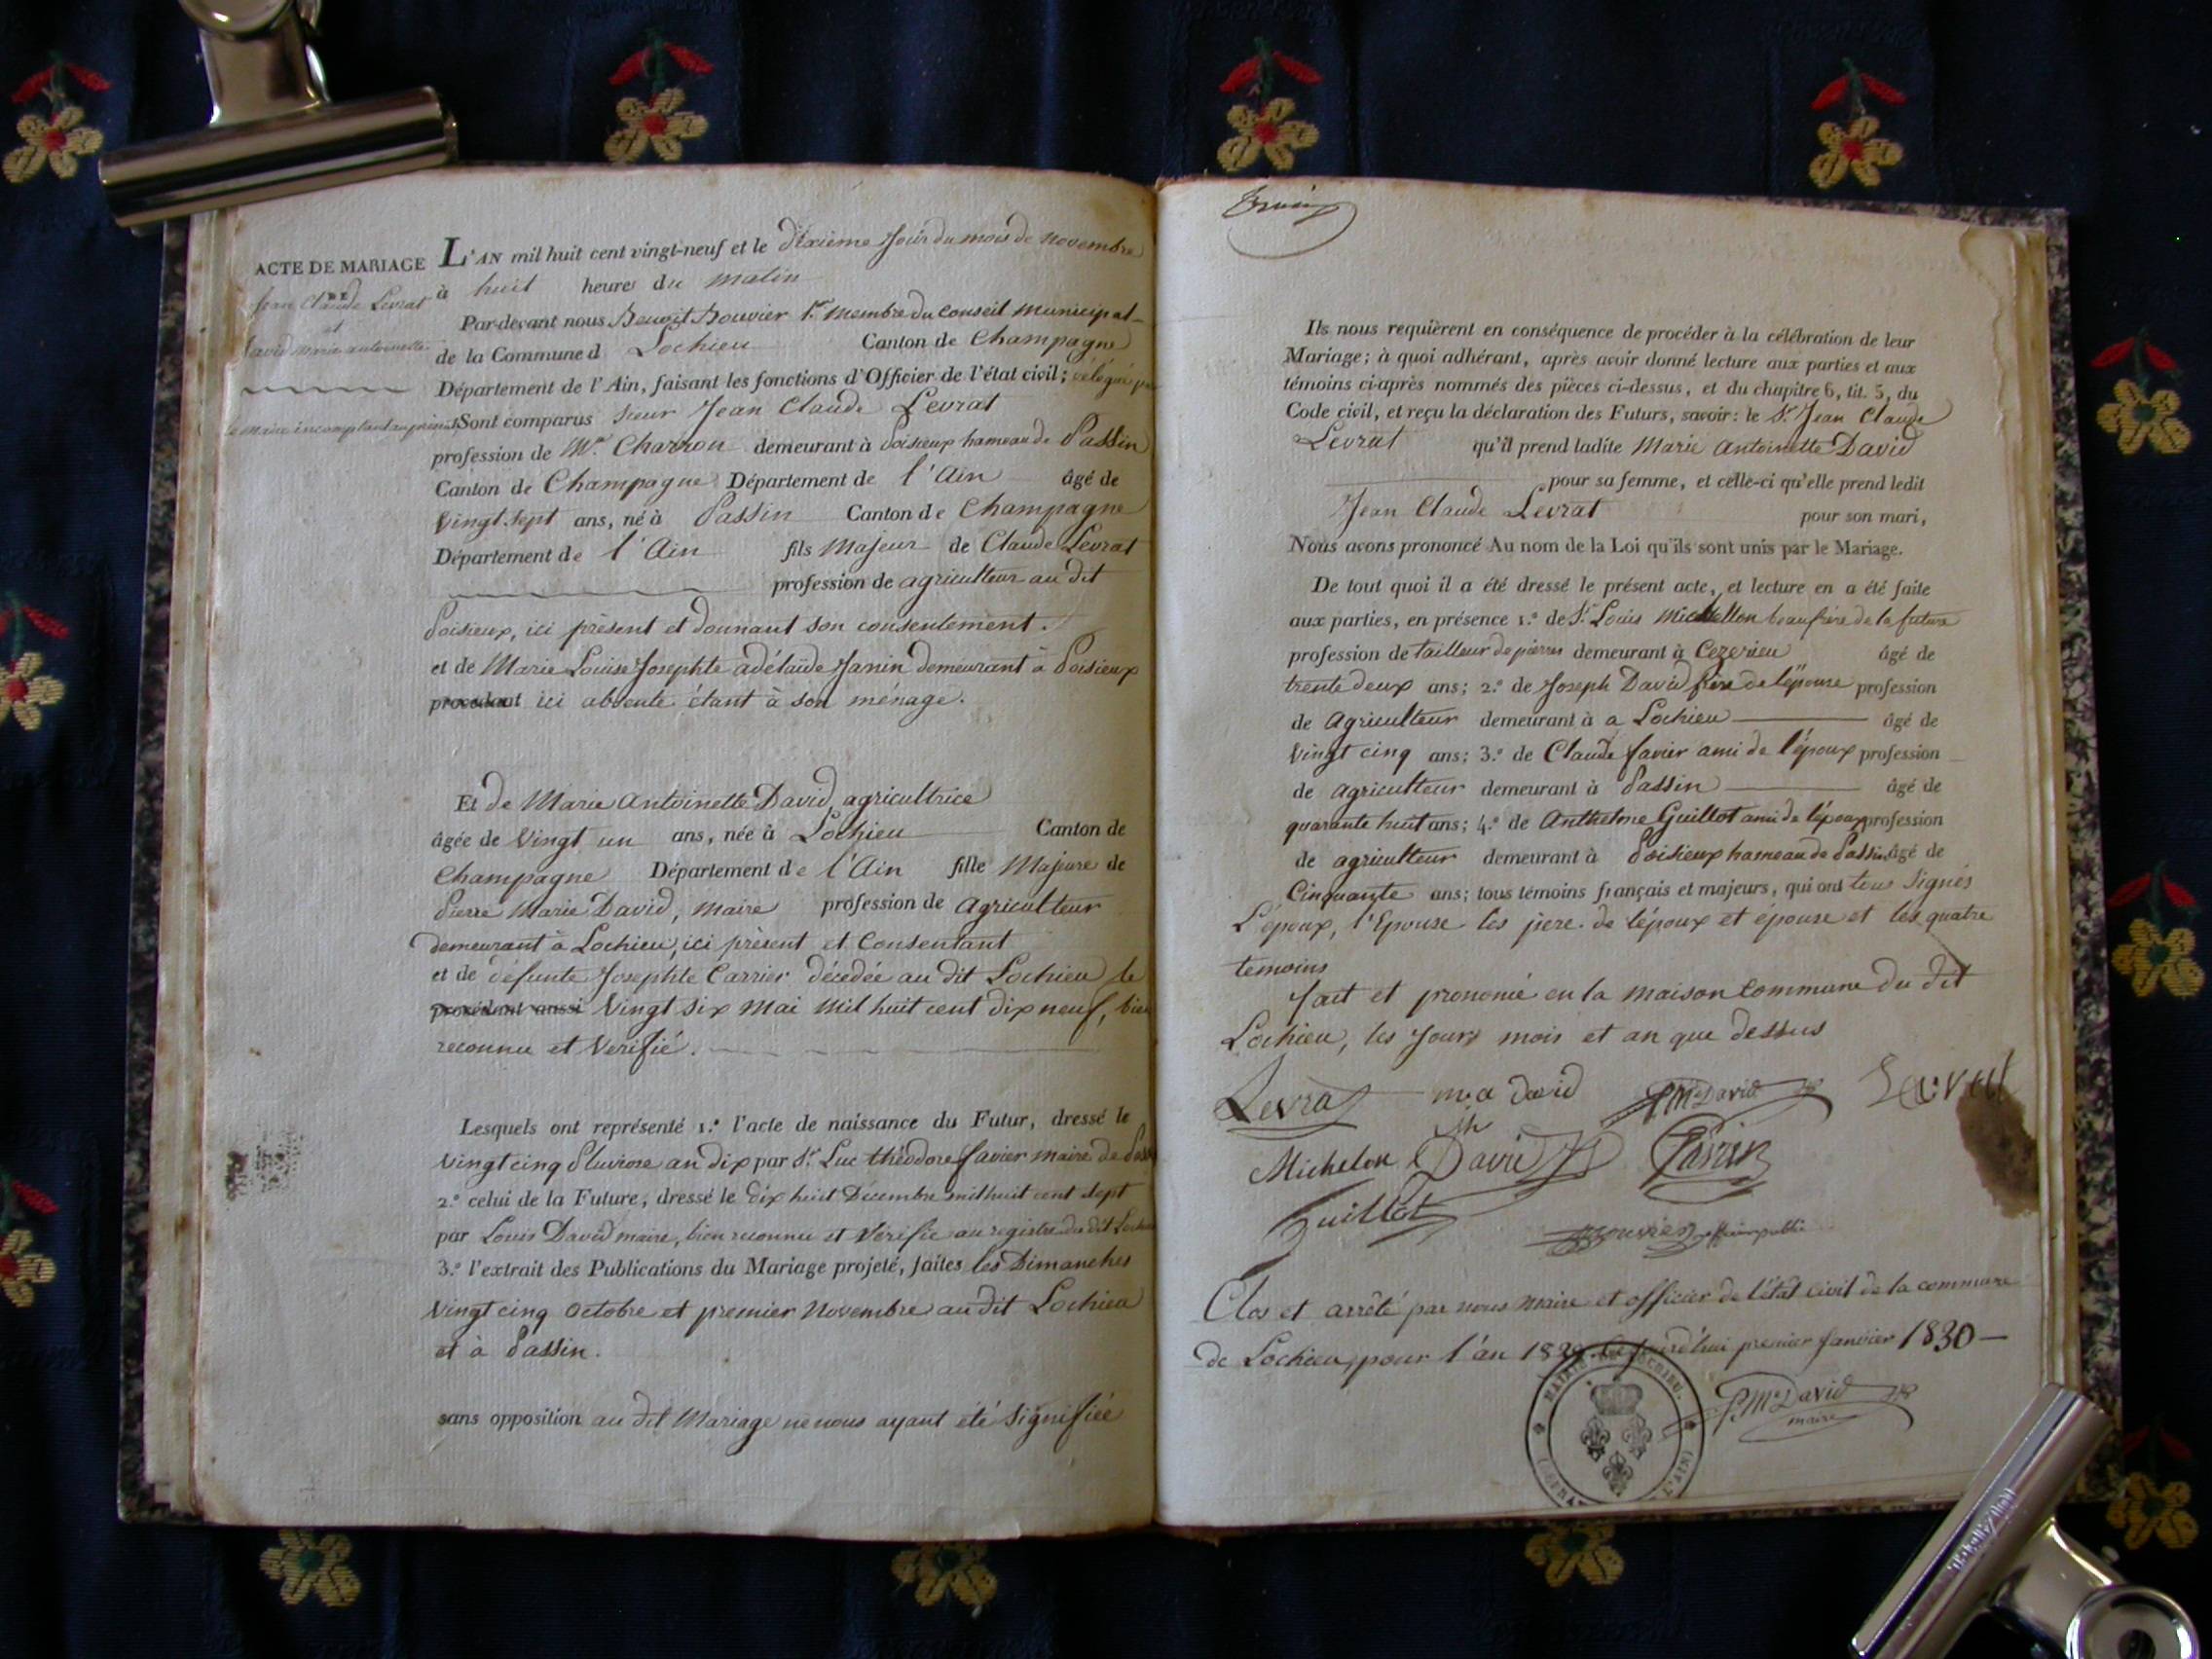 ACTE DE MARIAGE
DE
Jean Claude Levrat
et
David marie antoinette
L'AN mil huit cent vingt-neuf et le dixième Jour du mois de novembre
à huit heures du matin
Par-devant nous Benoit Bouvier 1.er membre du conseil municipal
de la Commune d Lochieu Canton de Champagne
Département de l'Ain, faisant les fonctions d'Officier de l'état civil; délégué par
le Maire
Sont comparus sieur Jean Claude Levrat
profession de M.e Charron demeurant à Poisieux hameau de Passin
Canton de Champagne Département de l'Ain âgé de
Vingt sept ans, né à Passin Canton de Champagne
Département de l'Ain fils Majeur de Claude Levrat
profession de agriculteur au dit
Poisieux, ici présent et donnant son consentement.
et de Marie Louise Josephte adélaïde Janin demeurant à Poisieux
procédant ici absente étant à son ménage.
Et de Marie Antoinette David, agricultrice
âgée de Vingt un ans, née à Lochieu Canton de
Champagne Département de l'Ain fille Majeure de
Pierre Marie David, maire profession de Agriculteur
demeurant à Lochieu, ici présent et Consentant
et de défunte Josephte Carrier décédée au dit Lochieu le
procédant aussi Vingt six Mai Mil huit cent dix neuf, bien
reconnu et Verifié.
Lesquels ont représenté 1.º l'acte de naissance du Futur, dressé le
Vingt cinq Pluviose an dix par S.r Luc théodore favier maire de
2.º celui de la Future, dressé le dix huit Décembre mil huit cent sept
par Louis David maire, bien reconnu et Vérifié au registre du dit Lochieu
3.º l'extrait des Publications du Mariage projeté, faites les Dimanches
Vingt cinq Octobre et premier Novembre au dit Lochieu
et à Passin.
sans opposition au dit Mariage ne nous ayant été signifiée
Ils nous requièrent en conséquence de procéder à la célébration de leur
Mariage; à quoi adhérant, après avoir donné lecture aux parties et aux
témoins ci-après nommés des pièces ci-dessus, et du chapitre 6, tit. 5, du
Code civil, et reçu la déclaration des Futurs, savoir: le S.r Jean Claude
Levrat qu'il prend ladite Marie Antoinette David
pour sa femme, et celle-ci qu'elle prend ledit
Jean Claude Levrat pour son mari,
Nous avons prononcé Au nom de la Loi qu'ils sont unis par le Mariage.
De tout quoi il a été dressé le présent acte, et lecture en a été faite
aux parties, en présence 1.º de S.r Louis Michellon beaufrère de la future
profession de tailleur de pierres demeurant à Cezerieu âgé de
trente deux ans; 2.º de Joseph David frère de l'épouse profession
de Agriculteur demeurant à a Lochieu âgé de
Vingt cinq ans; 3.º de Claude favier ami de l'époux profession
de agriculteur demeurant à Passin âgé de
quarante huit ans; 4.º de Anthelme Guillot ami de l'époux profession
de agriculteur demeurant à Poisieux hameau de Passin âgé de
Cinquante ans; tous témoins français et majeurs, qui ont tous Signés
L'époux, l'Epouse les pere de l'époux et épouse et les quatre
temoins
fait et prononcé en la maison Commune du dit
Lochieu, les Jours mois et an que dessus
Levrat m.a david P.M.e David Levrat
Michelon Jh David Favier
Guillot
Bouvier officier public
Clos et arrêté par nous maire et officier de l'état civil de la commune
de Lochieu, pour l'an 1829. Ce jourd'hui premier Janvier 1830
P.M.e David
maire
MAIRIE DE LOCHIEU.
L'AIN)